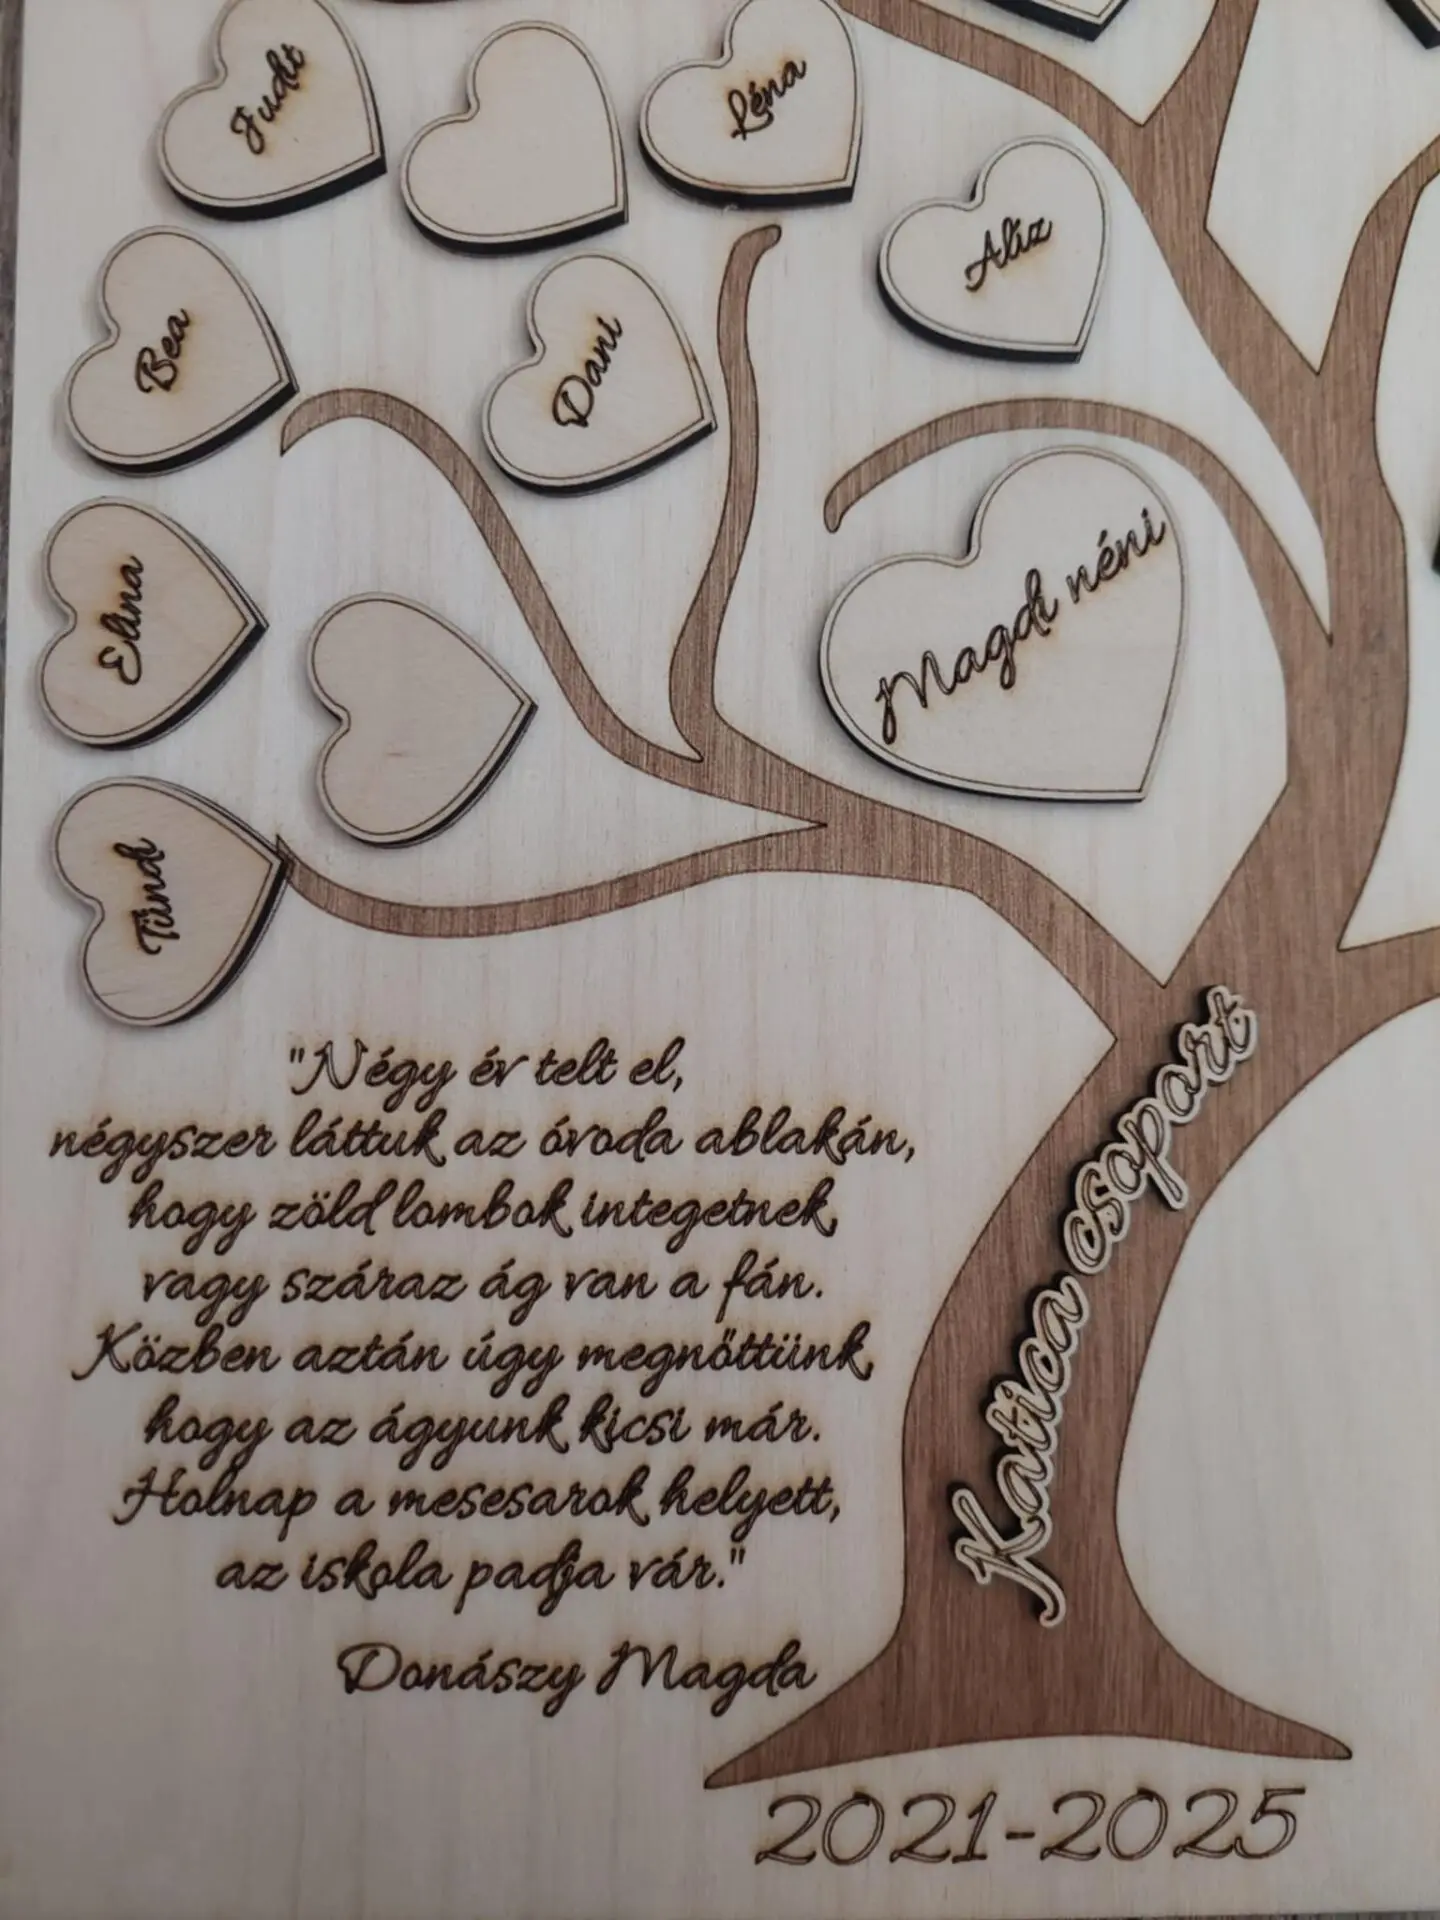 Judit
Léna
Alíz
Bea
Dani
Magdi néni
Elina
Tündi
"Négy év telt el,
négyszer láttuk az óvoda ablakán,
hogy zöld lombok integetnek,
vagy száraz ág van a fán.
Közben aztán úgy megnőttünk,
hogy az ágyunk kicsi már.
Holnap a mesesarok helyett,
az iskola padja vár."
Donászy Magda
Katica csoport
2021-2025